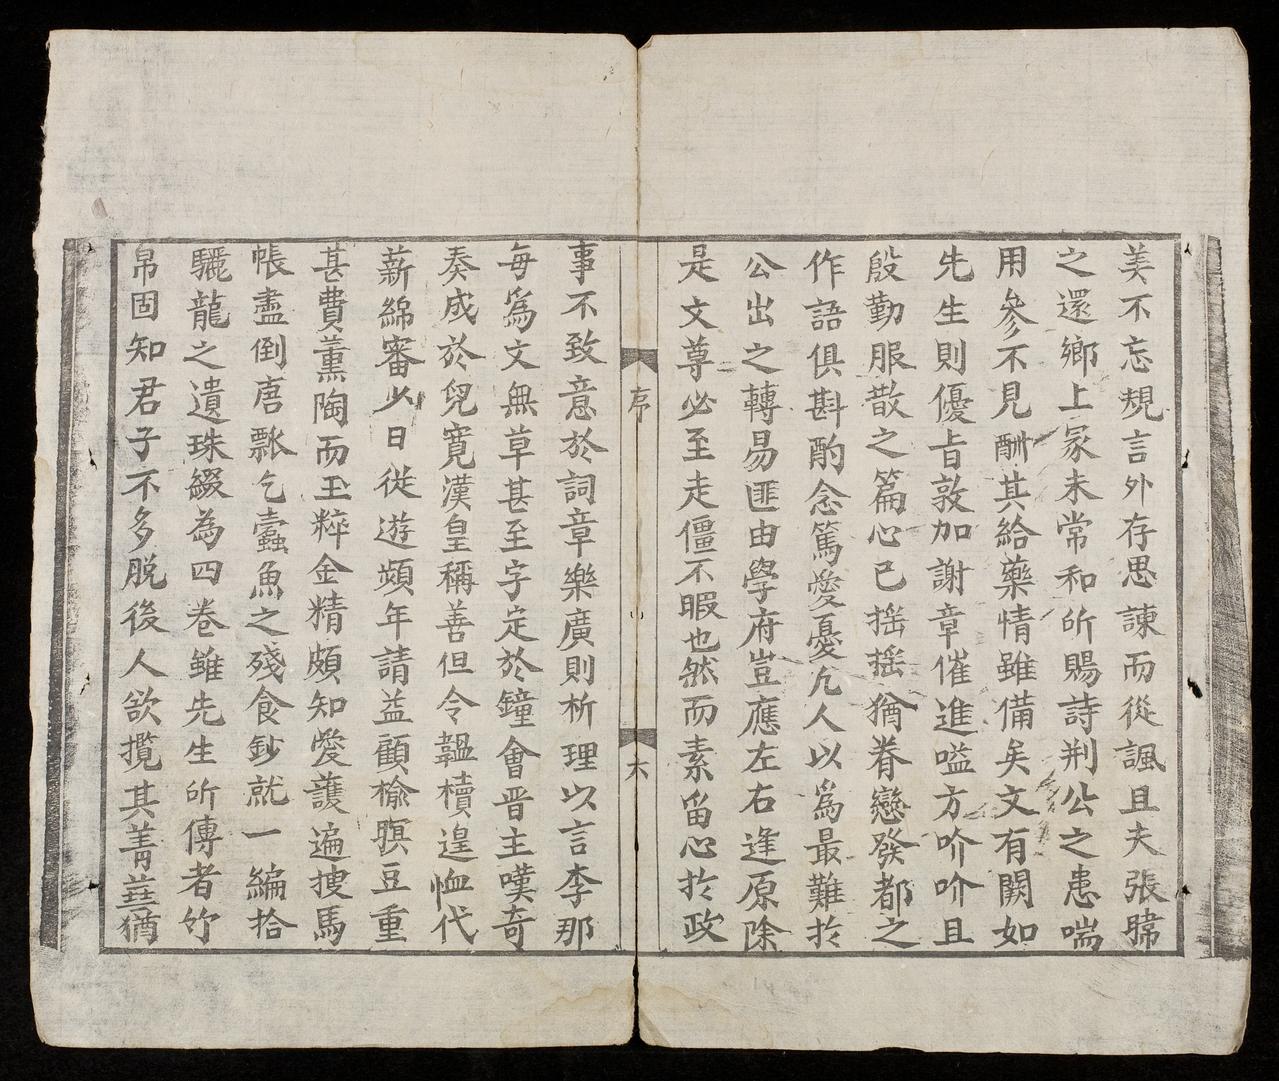 美不忘規言外存思諫而從諷且夫張暐
之還鄉上冢未常和所賜詩荆公之患喘
用參不見酬其給藥情雖備矣文有闕如
先生則優旨敦加謝章催進嗌方吤吤且
殷勤服散之篇心已揺揺猶眷戀發都之
作語俱斟酌念篤愛憂凢人以為最難於
公出之轉易匪由學府豈應左右逢原除
是文尊必至走僵不暇也然而素留心於政
序
六
事不致意於詞章樂廣則析理以言李那
每為文無草甚至字定於鐘會晋主嘆奇
奏成於兒寛漢皇稱善但令韞櫝遑恤代
薪綿審少日從遊頻年請益顧榆瞑豆重
甚費薰陶而玉粹金精頗知愛護遍搜馬
帳盡倒唐瓢乞蠧魚之殘食鈔就一編拾
驪龍之遺珠綴為四巻雖先生所傳者竹
帛固知君子不多脱後人欲攬其菁華猶